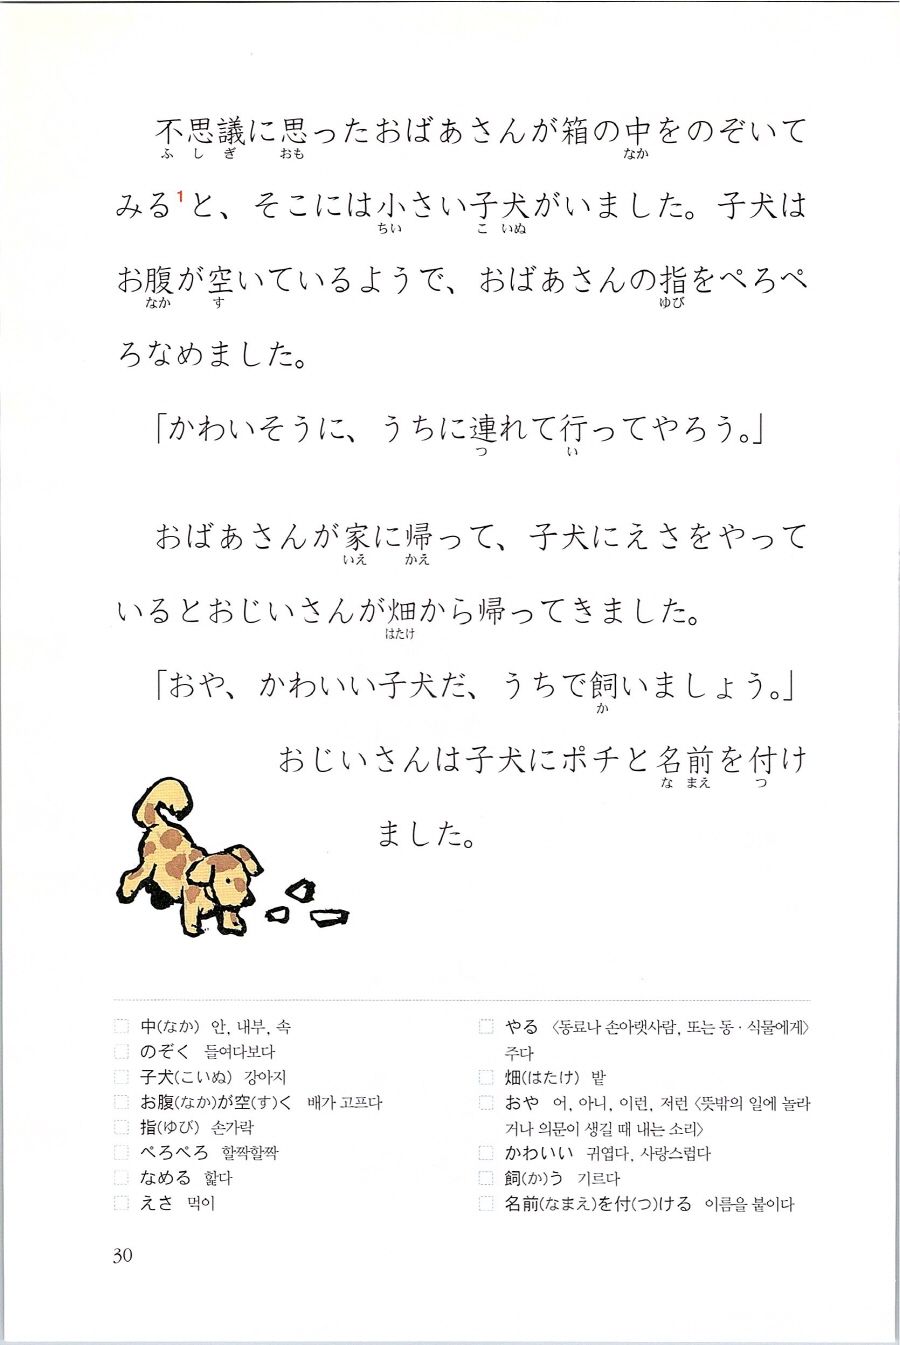 不思議に思ったおばあさんが箱の中をのぞいて
ふ し ぎ おも なか
みる1と、そこには小さい子犬がいました。子犬は
ちい こ いぬ
お腹が空いているようで、おばあさんの指をぺろぺ
なか す ゆび
ろなめました。
「かわいそうに、うちに連れて行ってやろう。」
つ い
おばあさんが家に帰って、子犬にえさをやって
いえ かえ
いるとおじいさんが畑から帰ってきました。
はたけ
「おや、かわいい子犬だ、うちで飼いましょう。」
か
おじいさんは子犬にポチと名前を付け
な まえ つ
ました。
中(なか) 안, 내부, 속
のぞく 들여다보다
子犬(こいぬ) 강아지
お腹(なか)が空(す)く 배가 고프다
指(ゆび) 손가락
ぺろぺろ 할짝할짝
なめる 핥다
えさ 먹이
やる 〈동료나 손아랫사람, 또는 동·식물에게〉
주다
畑(はたけ) 밭
おや 어, 아니, 이런, 저런 〈뜻밖의 일에 놀라
거나 의문이 생길 때 내는 소리〉
かわいい 귀엽다, 사랑스럽다
飼(か)う 기르다
名前(なまえ)を付(つ)ける 이름을 붙이다
30